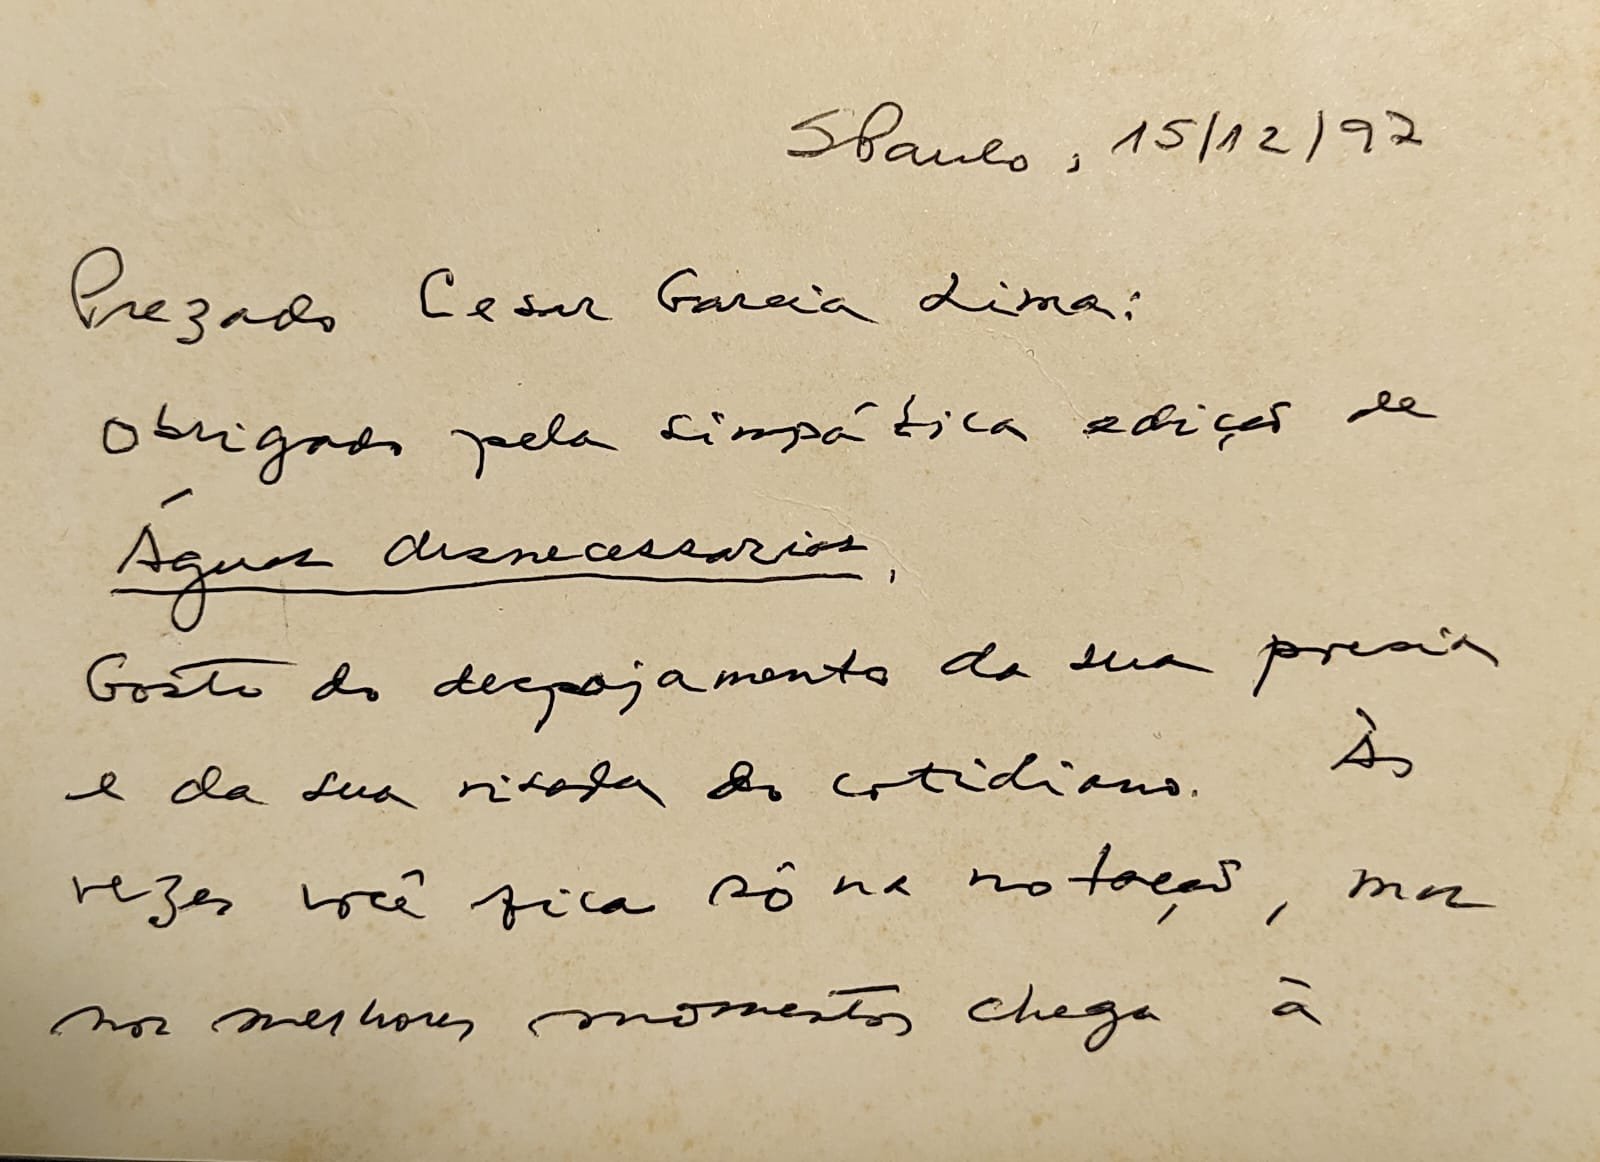 SPaulo, 15/12/97
Prezado Cesar Garcia Lima:
Obrigado pela simpática edição de
Águas desnecessarias.
Gosto do despojamento da sua poesia
e da sua risada do cotidiano. Às
vezes você fica só na notação, mas
nos melhores momentos chega à